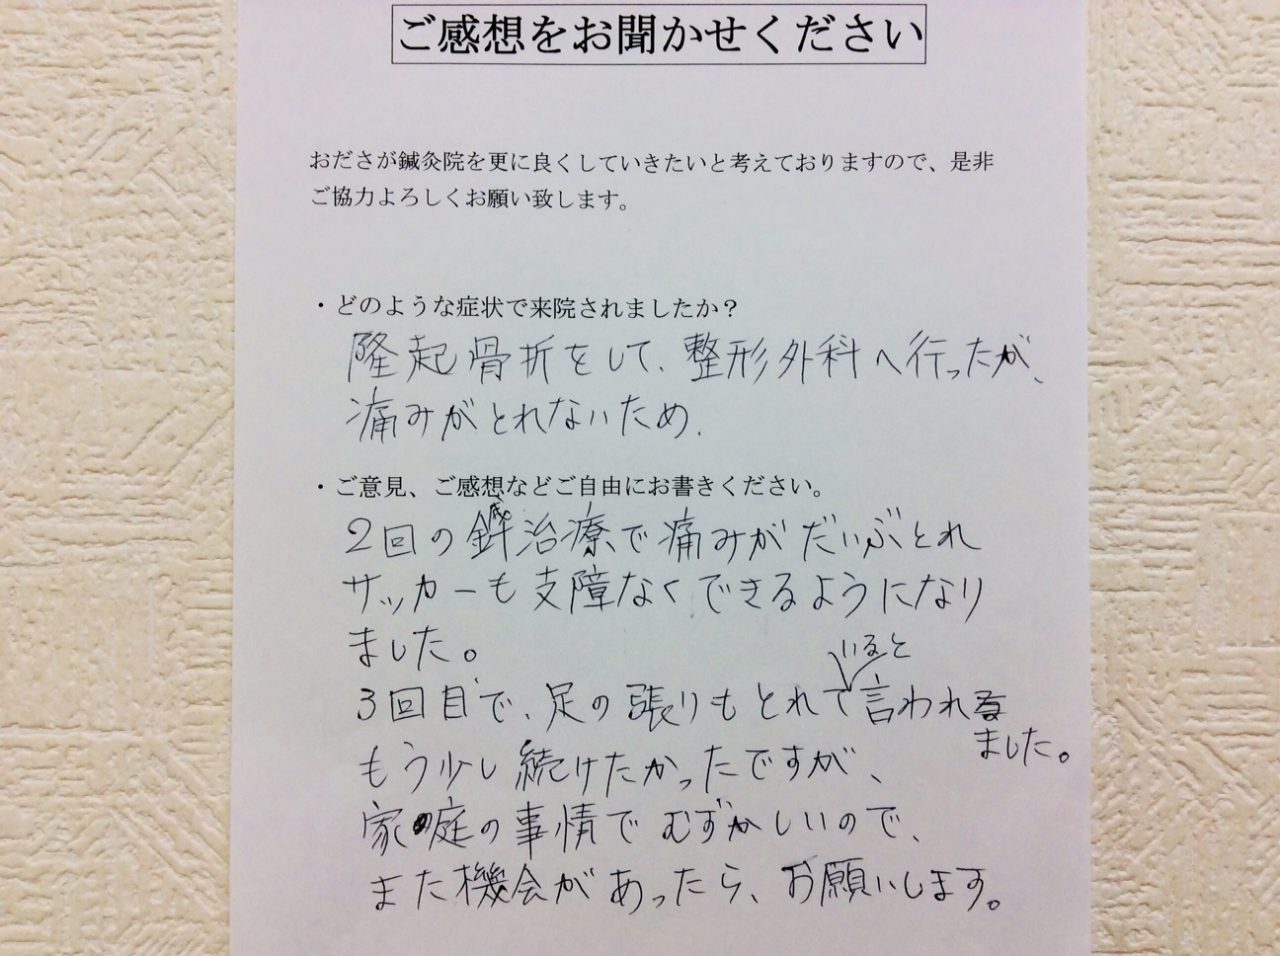 ご感想をお聞かせください
おださが鍼灸院を更に良くしていきたいと考えておりますので、是非
ご協力よろしくお願い致します。
・どのような症状で来院されましたか？
隆起骨折をして、整形外科へ行ったが、
痛みがとれないため.
・ご意見、ご感想などご自由にお書きください。
2回の鍼治療で痛みがだいぶとれ
サッカーも支障なくできるようになり
ました。
3回目で、足の張りもとれていると言われ
ました。
もう少し続けたかったですが、
家庭の事情でむずかしいので、
また機会があったら、お願いします。